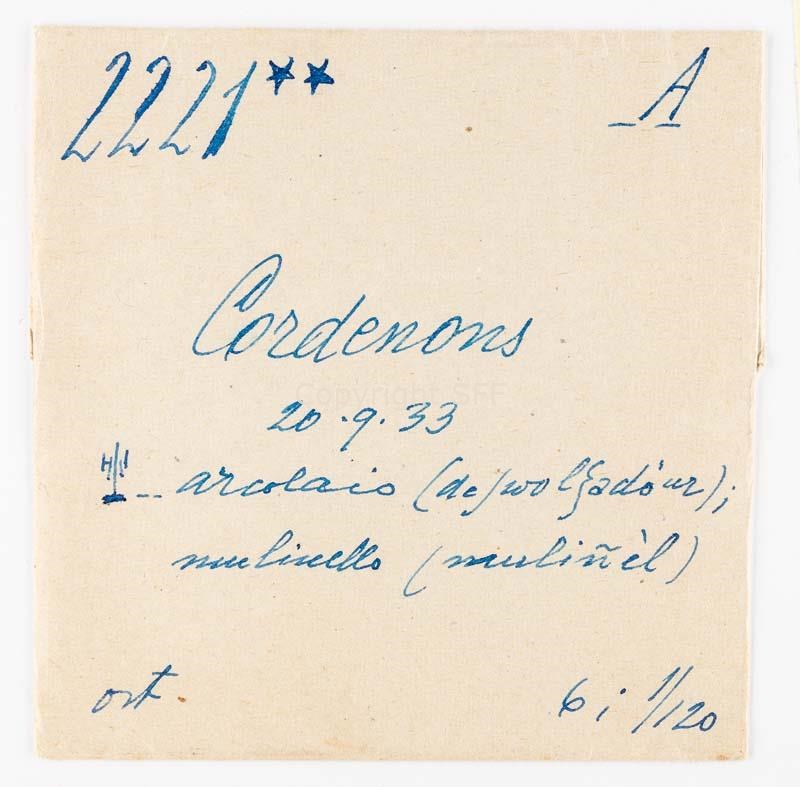 2221** A
Cordenons
Copyright SFF
20.9.33
arcolaio
mulinello (muliñèl)
ort 6; 1/120